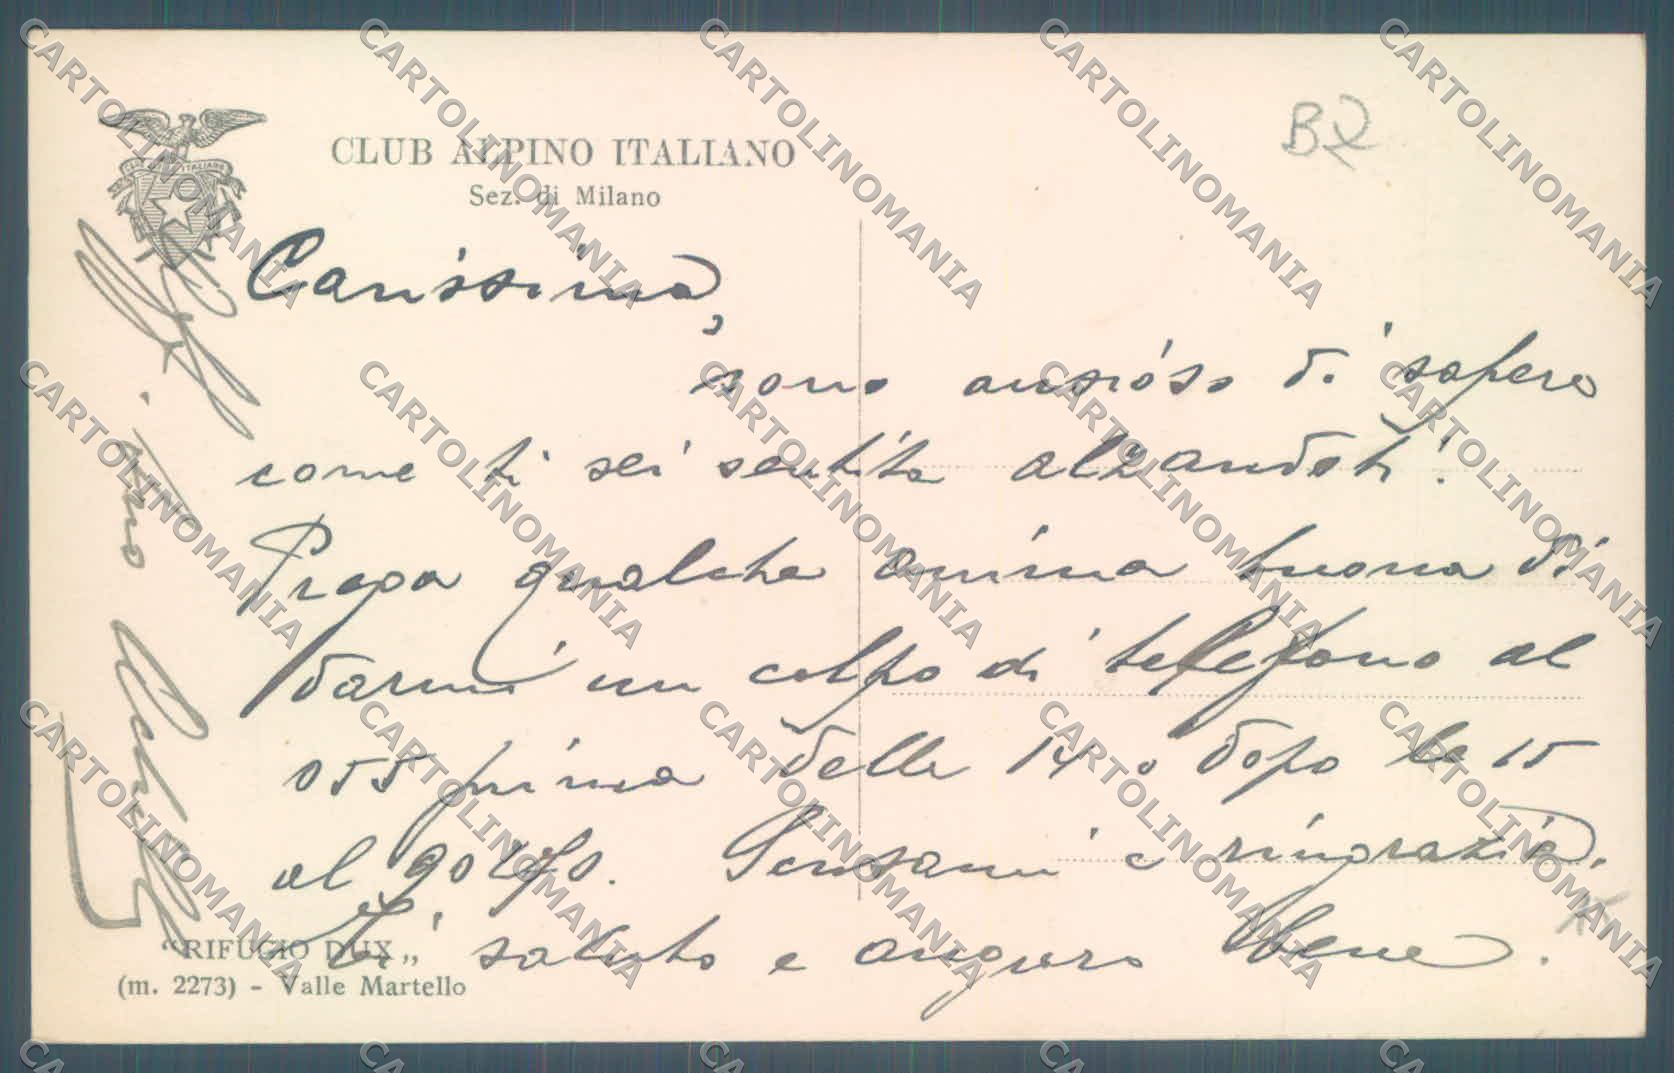 CLUB ALPINO ITALIANO
Sez. di Milano
Carissima,
sono ansioso di sapere
come ti sei sentita alzandoti!
Prega qualche anima buona di
darmi un colpo di telefono al
055 prima delle 14 o dopo le 15
al 90470. Scusami e ringrazia.
Ti saluto e auguro bene.
tuo Achille
"RIFUGIO DUX„
(m. 2273) - Valle Martello
CARTOLINOMANIA